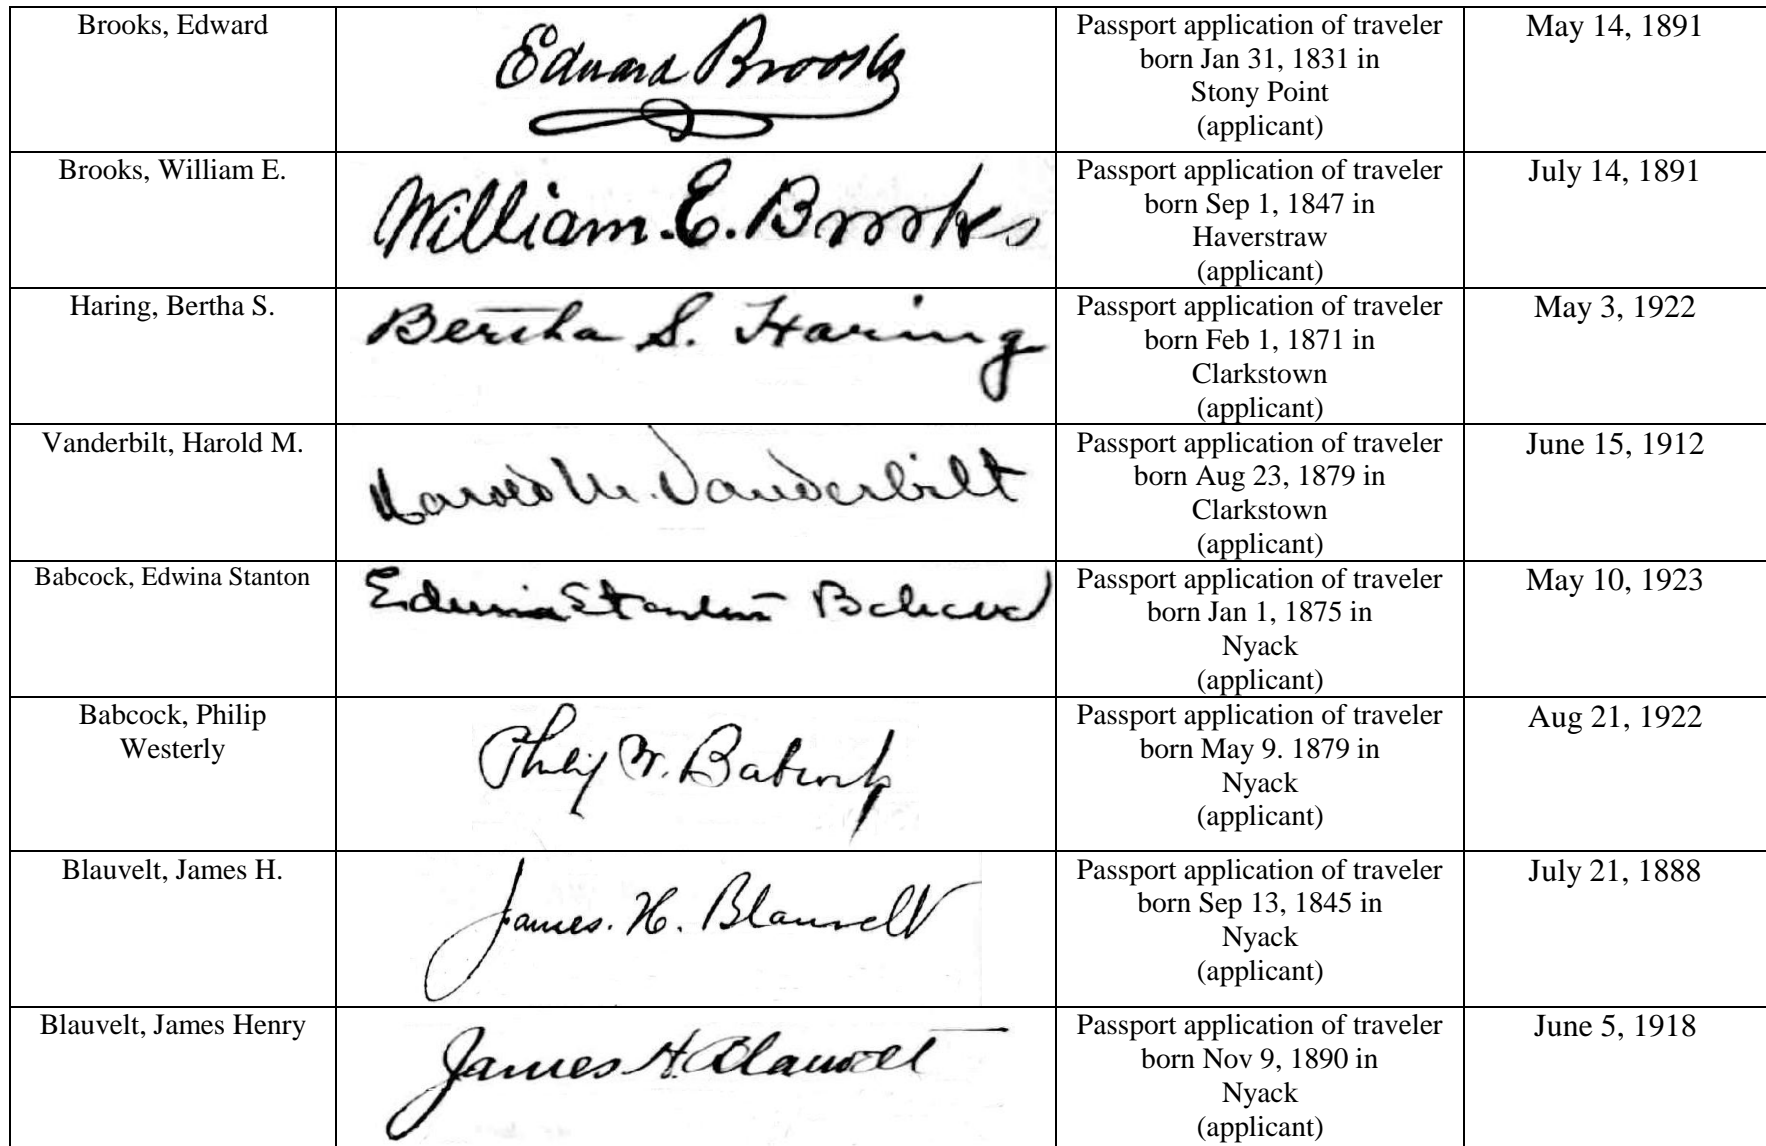 Brooks, Edward
Edward Brooks
Passport application of traveler
born Jan 31, 1831 in
Stony Point
(applicant)
May 14, 1891
Brooks, William E.
William. E. Brookes
Passport application of traveler
born Sep 1, 1847 in
Haverstraw
(applicant)
July 14, 1891
Haring, Bertha S.
Bertha S. Haring
Passport application of traveler
born Feb 1, 1871 in
Clarkstown
(applicant)
May 3, 1922
Vanderbilt, Harold M.
Harold M. Vanderbilt
Passport application of traveler
born Aug 23, 1879 in
Clarkstown
(applicant)
June 15, 1912
Babcock, Edwina Stanton
Edwina Stanton Babcock
Passport application of traveler
born Jan 1, 1875 in
Nyack
(applicant)
May 10, 1923
Babcock, Philip
Westerly
Philip W. Babcock
Passport application of traveler
born May 9. 1879 in
Nyack
(applicant)
Aug 21, 1922
Blauvelt, James H.
James. H. Blauvelt
Passport application of traveler
born Sep 13, 1845 in
Nyack
(applicant)
July 21, 1888
Blauvelt, James Henry
James H. Blauvelt
Passport application of traveler
born Nov 9, 1890 in
Nyack
(applicant)
June 5, 1918